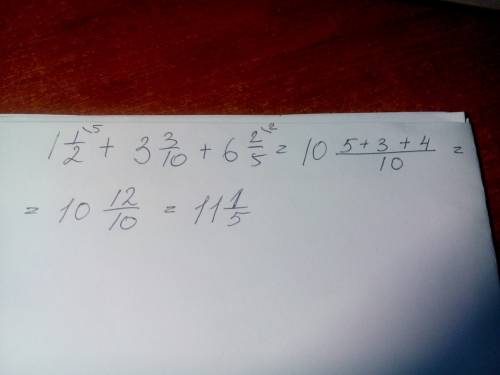 1 1/2 \5 + 3 3/10 + 6 2/5 \2 = 10 (5+3+4)/10 =
= 10 12/10 = 11 1/5